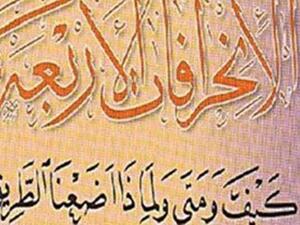 الانحرافات الأربعة
كَيْفَ وَمَتَى وَلمِاذَا اَضَعْنَا